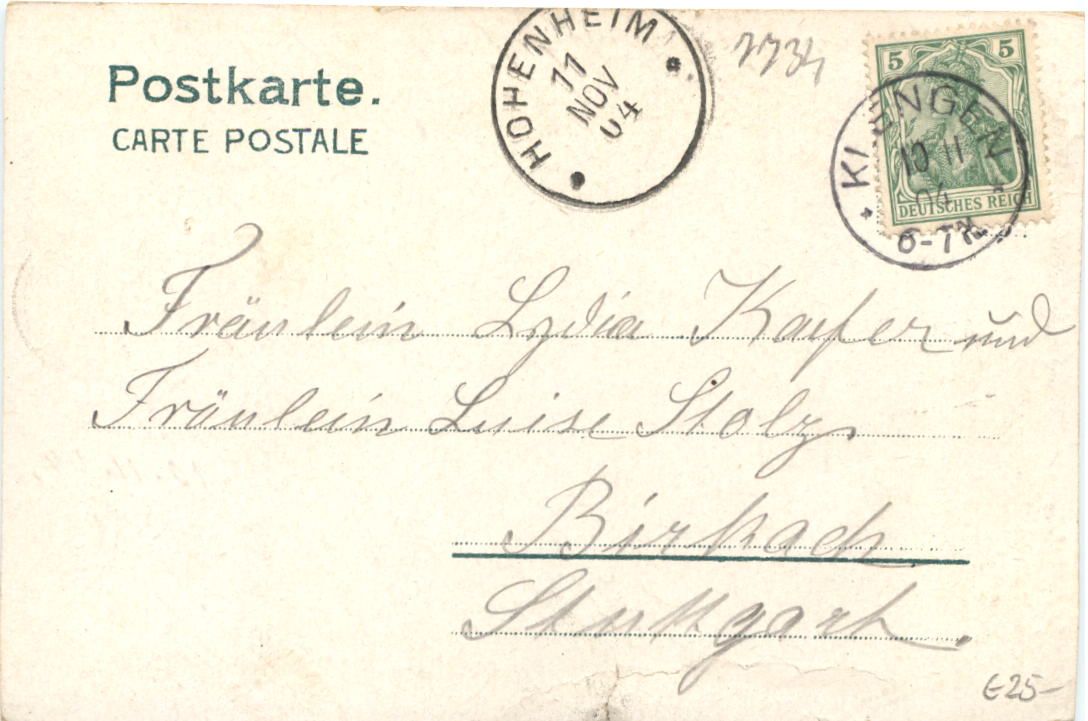 Postkarte.
CARTE POSTALE
HOHENHEIM
11
NOV
04
5 5
DEUTSCHES REICH
10 11
04
6-7N
Fräulein Lydia Kaufer und
Fräulein Luise Stolz
Birkach
Stuttgart.
€25-